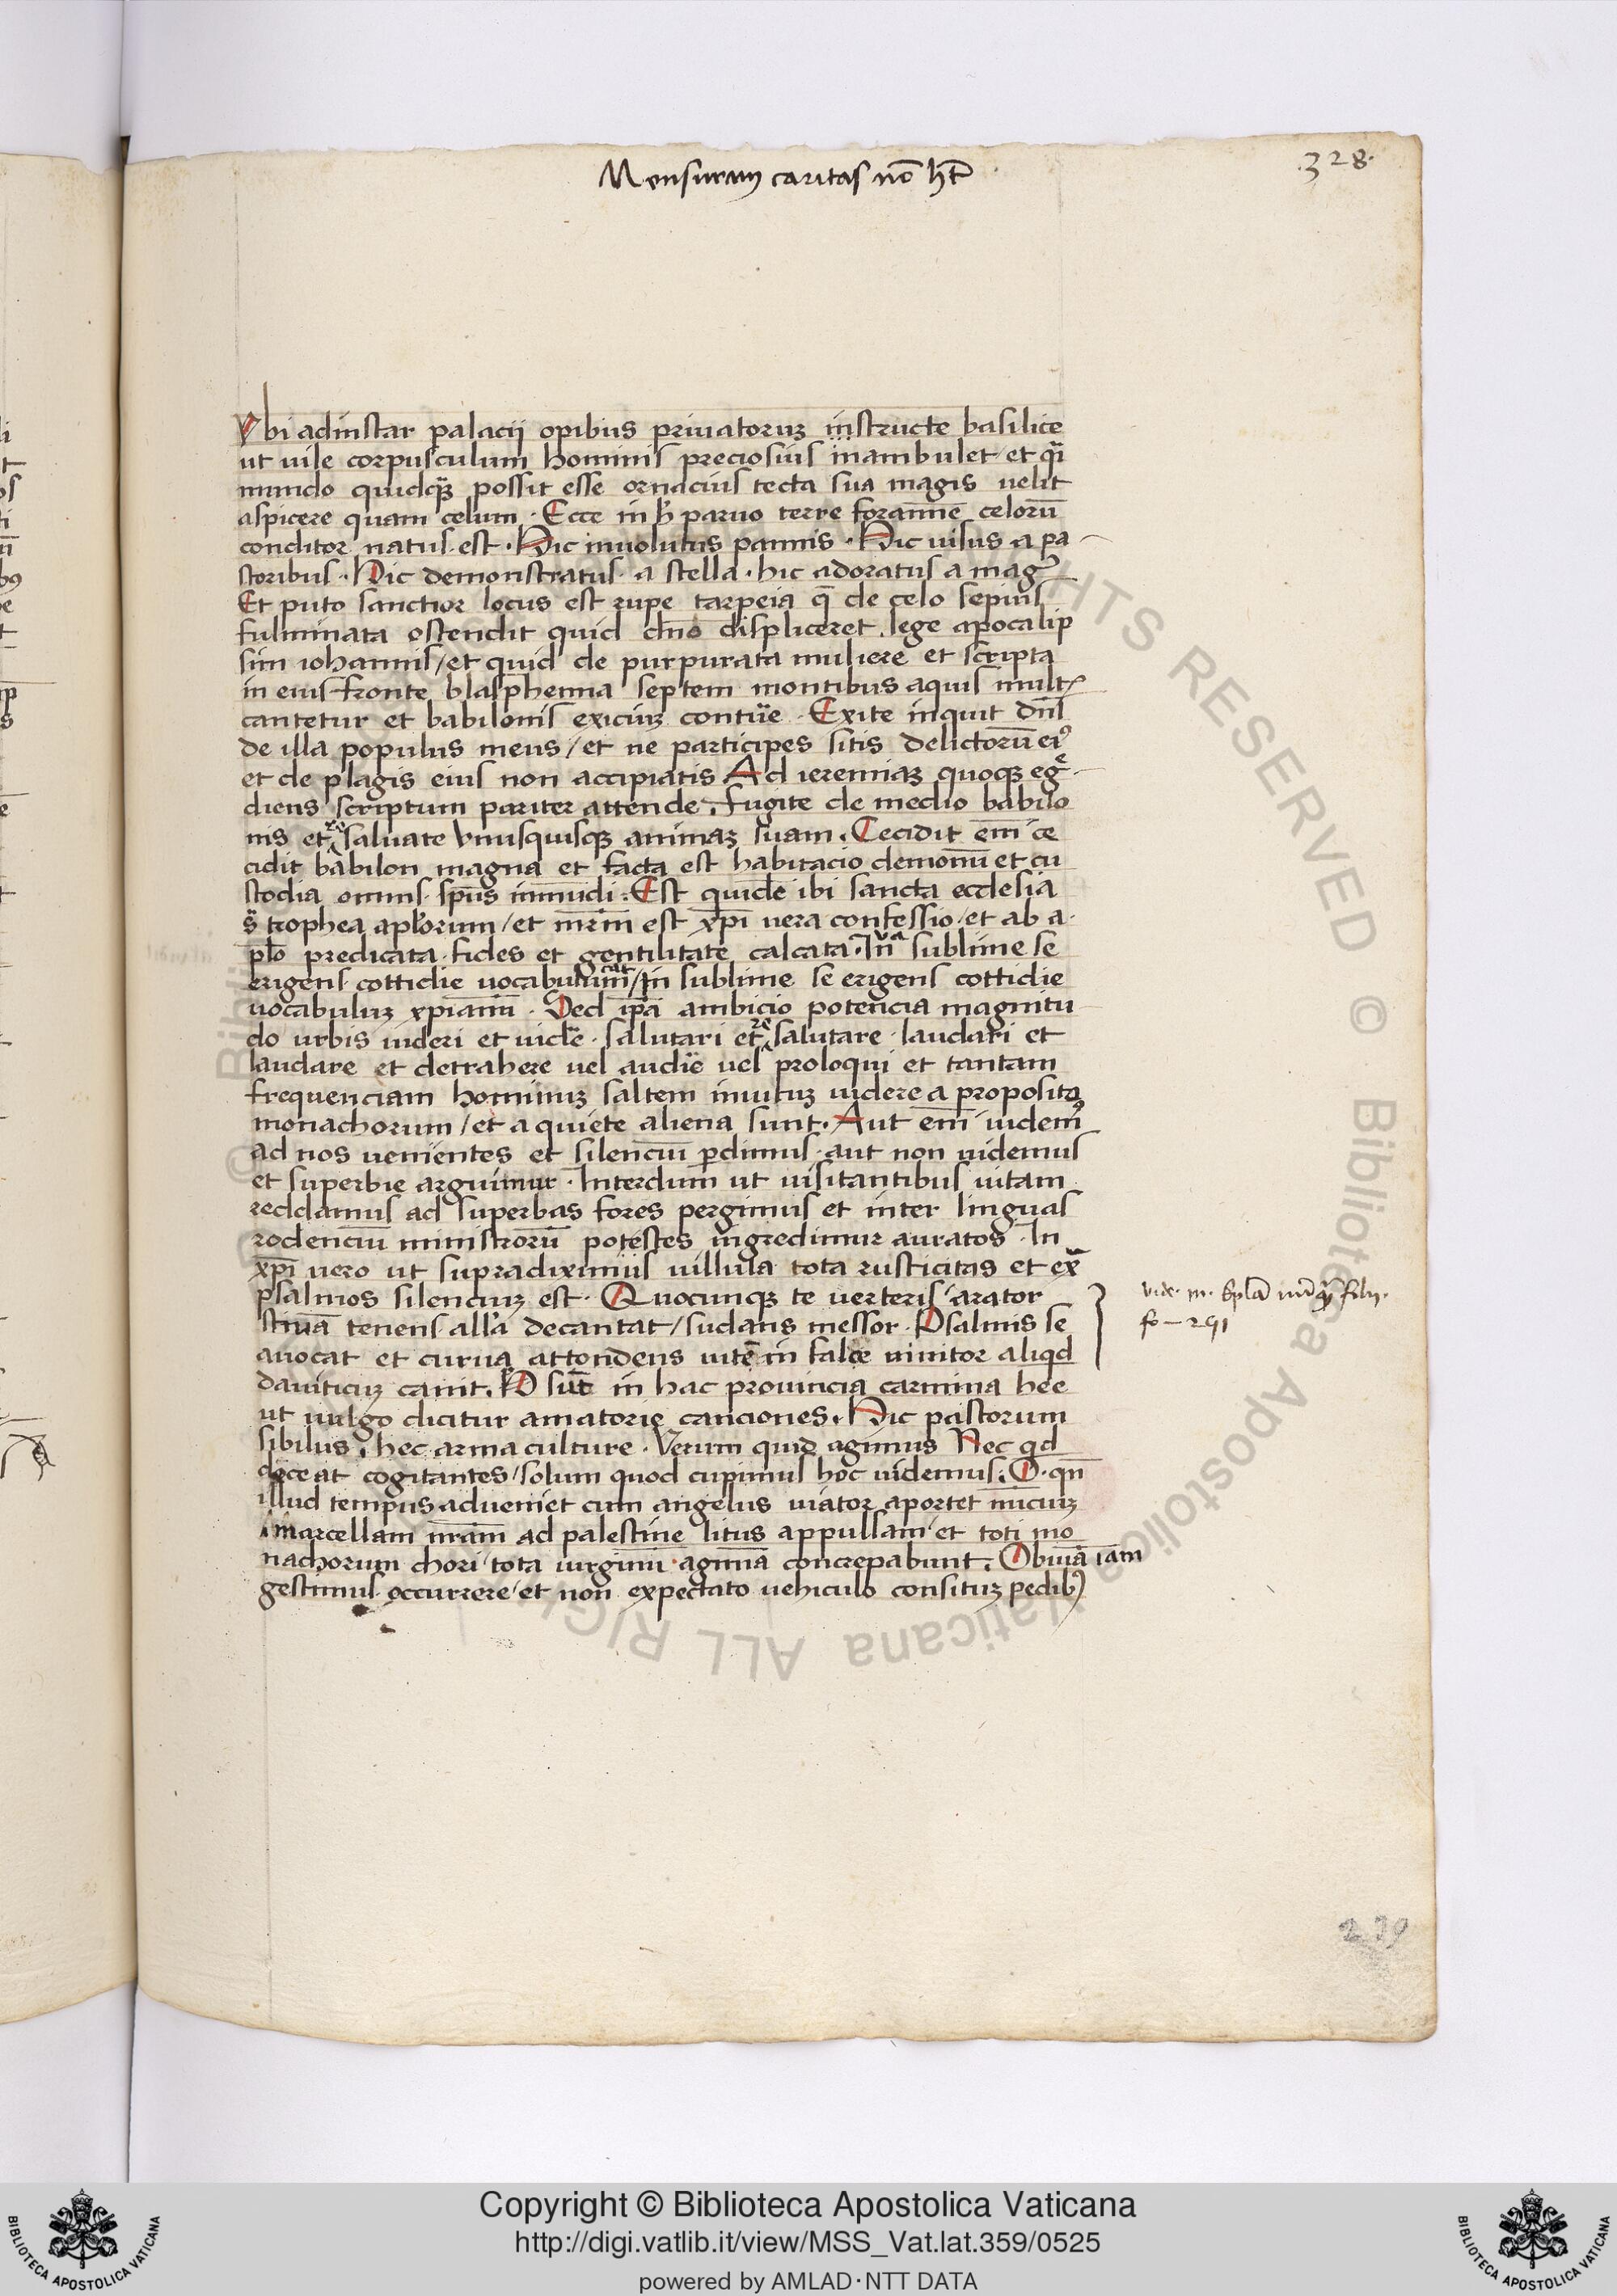 Mensuram caritas nō hꝫt
.328.
Vbi adinstar palacij opibus priuatoruꝫ instructe basilice
ut uile corpusculum hominis preciosius inambulet et q̄i
mundo quidq̄ꝫ possit esse ornacius tecta sua magis uelit
aspicere quam celum · Ecce in h̄ paruo terre foram̄e celorū
conditor natus est · Hic inuolutus pannis · Hic uisus a pa
storibus · Hic demonstratus a stella · hic adoratus a mag
Et puto sanctior locus est rupe tarpeia q̄ de celo sepius
fulminata ostendit quid dn̄o displiceret . lege apocalip
sim iohannis / et quid de purpurata muliere et scripta
in eius fronte blasphemia septem montibus aquis mult
cantetur et babilonis exiciuꝫ contue · Exite inquit dn̄s
de illa populus meus / et ne participes sitis delictorū eiꝰ
et de plagis eius non accipiatis Ad ieremiaꝫ quoqꝫ eg
diens scriptum pariter attende . fugite de medio babilo
nis et saluate vnusquisqꝫ animaꝫ suam . Cecidit em̄ ce
cidit babilon magna et facta est habitacio demonū et cu
stodia omnis sp̄us inmūdi : Est quidē ibi sancta ecclesia
trophea apl̄orum / et mr̄m est xp̄i uera confessio / et ab a
pl̄o predicata fides et gentilitate calcata · In sublime se
erigens cottidie uocabulum / in sublime se erigens cottidie
uocabuluꝫ xp̄ianū · Sed ip̄a ambicio potencia magnitu
do urbis uideri et uidē · salutari et salutare · laudari et
laudare et detrahere uel audīe uel proloqui et tantam
frequenciam hominuꝫ saltem inuituꝫ uidere a proposito
monachorum / et a quiete aliena sunt . Aut em̄ uidemꝰ
ad nos uenientes et silenciū ꝑdimus · aut non uidemus
et superbie arguimur · Interdum ut uisitantibus uitam
reddamus ad superbas fores pergimus et inter linguas
rodenciū ministrorū potestes ingredimur auratos · In
xp̄i uero ut supradiximus uillula tota rusticitas et ex̄
psalmos silenciuꝫ est · Quocunqꝫ te uerteris arator
stiuā tenens all'a decantat / sudans messor . Psalmis se
auocat et curua attondens uitē in falce uinitor aliqd
dauiticuꝫ canit . sūt in hac prouincia carmina hee
ut uulgo dicitur amatorie canciones . Hic pastorum
sibilus . hec arma culture · Verum quid agimus Nec qd
deceat cogitantes / solum quod cupimus hoc uidemus . O · qn̄
illud tempus adueniet cum angelus uiator aportet nūciuꝫ
marcellam nr̄am ad palestine litus appulsam et toti mo
nachorum chori / tota uirginū · agmina concrepabunt . Obuiā iam
gestimus occurrere / et non expectato vehiculo consituꝫ pedibꝰ
279
Copyright © Biblioteca Apostolica Vaticana
http://digi.vatlib.it/view/MSS_Vat.lat.359/0525
powered by AMLAD·NTT DATA
BIBLIOTECA APOSTOLICA VATICANA
BIBLIOTECA APOSTOLICA VATICANA
© Biblioteca Apostolica Vaticana ALL RIGHTS RESERVED